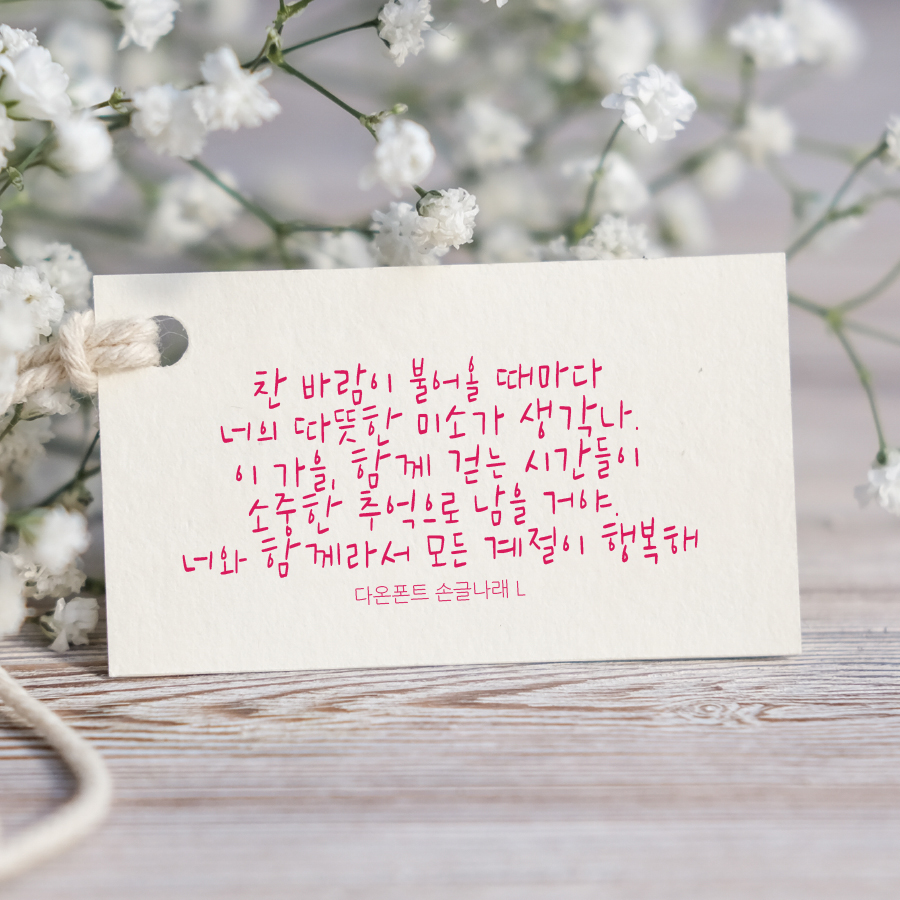 찬 바람이 불어올 때마다
너의 따뜻한 미소가 생각나.
이 가을, 함께 걷는 시간들이
소중한 추억으로 남을 거야.
너와 함께라서 모든 계절이 행복해
다온폰트 손글나래 L